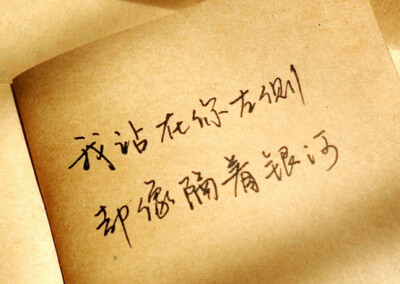 我站在你左侧
却像隔着银河